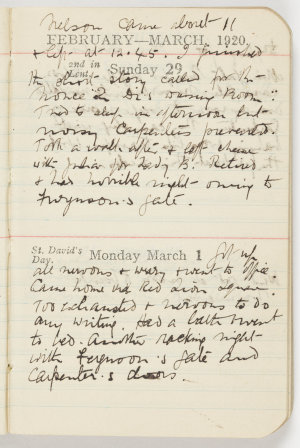 Nelson came about 11
FEBRUARY—MARCH, 1920
& left at 12.45. I finished
2nd in Lent. Sunday 29
the short story called for the
"Di's Waiting Room."
Tried to sleep in afternoon but
noisy Carpenters prevented.
Took a walk after & left
with Julia for Lady B. Retired
& had horrible night owing to
Ferguson's gate.
St. David's Day. Monday March 1 Got up
all nervous & weary & went to office.
Came home via Red Lion Square.
Too exhausted & nervous to do
any writing. Had a bath & went
to bed. Another racking night
with Ferguson's gate and
Carpenter's doors.